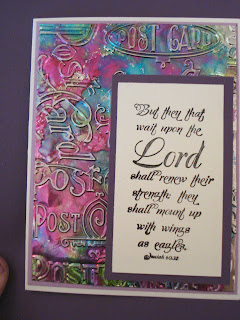 POST CARD
Post Card
Post
POST C
Post
But they that
wait upon the
Lord
shall renew their
strength they
shall mount up
with wings
as eagles.